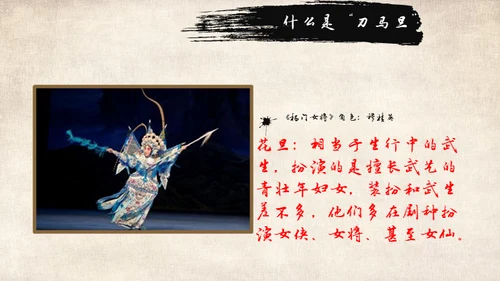 什么是“刀马旦”
《杨门女将》角色：穆桂英
花旦：相当于生行中的武
生，扮演的是擅长武艺的
青壮年妇女，装扮和武生
差不多，他们多在剧种扮
演女侠、女将、甚至女仙。